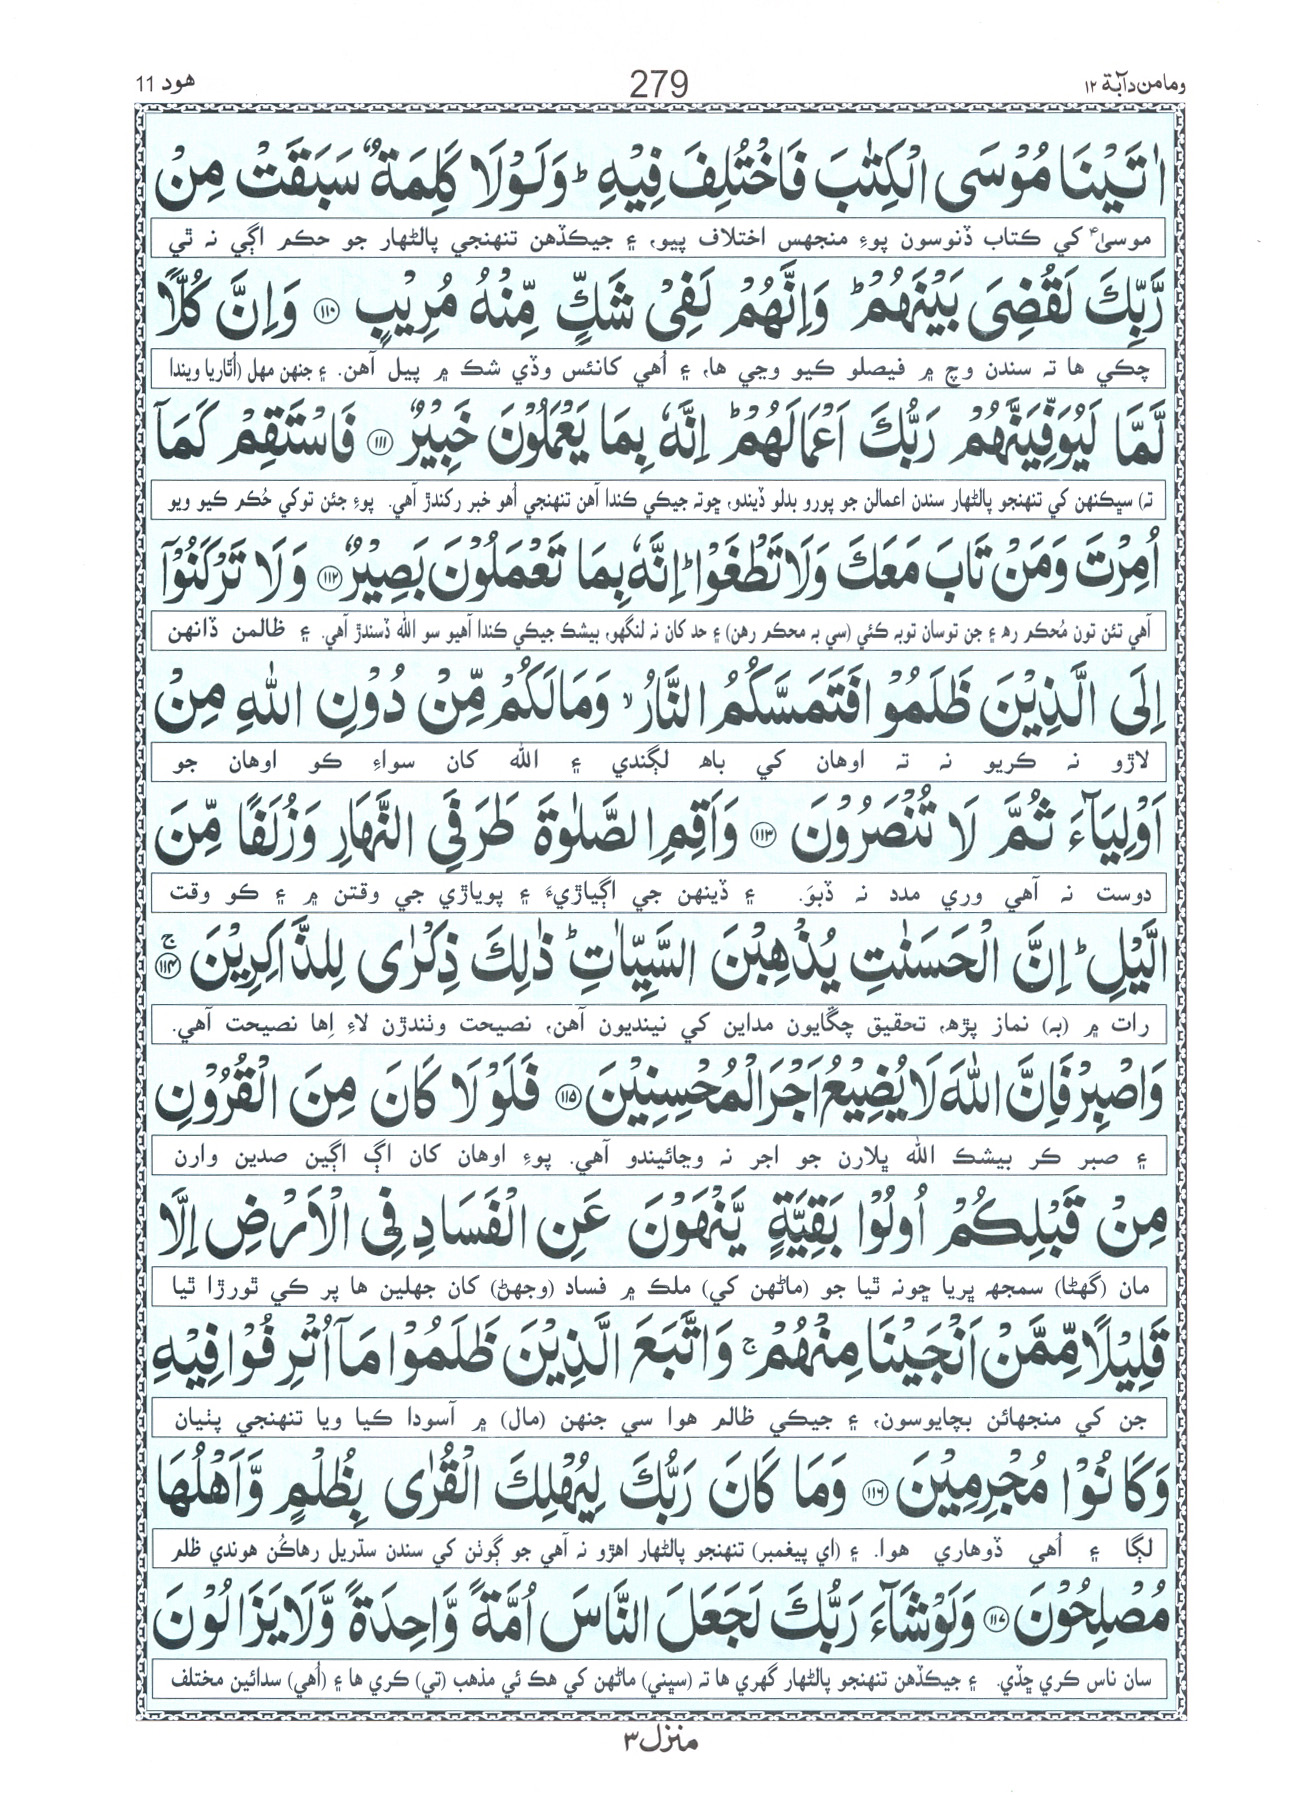 هود 11
279
ومامن دآبة ١٢
اٰتَيْنَا مُوْسَى الْكِتٰبَ فَاخْتُلِفَ فِيْهِ ؕ وَلَوْلَا كَلِمَةٌ سَبَقَتْ مِنْ
موسيٰ ؑ کي ڪتاب ڏنوسون پوءِ منجهس اختلاف پيو، ۽ جيڪڏهن تنهنجي پالڻهار جو حڪم اڳي نہ ٿي
رَّبِّكَ لَقُضِىَ بَيْنَهُمْ ؕ وَاِنَّهُمْ لَفِىْ شَكٍّ مِّنْهُ مُرِيْبٍ ﴿١١٠﴾ وَاِنَّ كُلًّا
چڪي ها تہ سندن وچ ۾ فيصلو ڪيو وڃي ها، ۽ اُهي کانئس وڏي شڪ ۾ پيل آهن. ۽ جنهن مهل (اُٿاريا ويندا
لَّمَّا لَيُوَفِّيَنَّهُمْ رَبُّكَ اَعْمَالَهُمْ ؕ اِنَّهٗ بِمَا يَعْمَلُوْنَ خَبِيْرٌ ﴿١١١﴾ فَاسْتَقِمْ كَمَاۤ
تہ) سڀڪنهن کي تنهنجو پالڻهار سندن اعمالن جو پورو بدلو ڏيندو، ڇوتہ جيڪي ڪندا آهن تنهنجي اُهو خبر رکندڙ آهي. پوءِ جئن توکي حُڪم ڪيو ويو
اُمِرْتَ وَمَنْ تَابَ مَعَكَ وَلَا تَطْغَوْا ؕ اِنَّهٗ بِمَا تَعْمَلُوْنَ بَصِيْرٌ ﴿١١٢﴾ وَلَا تَرْكَنُوْۤا
آهي تئن تون مُحڪم رھ ۽ جن توسان توبہ ڪئي (سي بہ محڪم رهن) ۽ حد کان نہ لنگهو، بيشڪ جيڪي ڪندا آهيو سو الله ڏسندڙ آهي. ۽ ظالمن ڏانهن
اِلَى الَّذِيْنَ ظَلَمُوْا فَتَمَسَّكُمُ النَّارُ ۙ وَمَا لَكُمْ مِّنْ دُوْنِ اللّٰهِ مِنْ
لاڙو نہ ڪريو نہ تہ اوهان کي باھ لڳندي ۽ الله کان سواءِ ڪو اوهان جو
اَوْلِيَآءَ ثُمَّ لَا تُنْصَرُوْنَ ﴿١١٣﴾ وَاَقِمِ الصَّلٰوةَ طَرَفَىِ النَّهَارِ وَزُلَفًا مِّنَ
دوست نہ آهي وري مدد نہ ڏبوَ. ۽ ڏينهن جي اڳياڙيءَ ۽ پوياڙي جي وقتن ۾ ۽ ڪو وقت
الَّيْلِ ؕ اِنَّ الْحَسَنٰتِ يُذْهِبْنَ السَّيِّاٰتِ ؕ ذٰلِكَ ذِكْرٰى لِلذَّاكِرِيْنَ ﴿١١٤﴾ ۚ
رات ۾ (بہ) نماز پڙھ، تحقيق چڱايون مداين کي نينديون آهن، نصيحت وٺندڙن لاءِ اِها نصيحت آهي.
وَاصْبِرْ فَاِنَّ اللّٰهَ لَا يُضِيْعُ اَجْرَ الْمُحْسِنِيْنَ ﴿١١٥﴾ فَلَوْلَا كَانَ مِنَ الْقُرُوْنِ
۽ صبر ڪر بيشڪ الله ڀلارن جو اجر نہ وڃائيندو آهي. پوءِ اوهان کان اڳ اڳين صدين وارن
مِنْ قَبْلِكُمْ اُولُوْا بَقِيَّةٍ يَّنْهَوْنَ عَنِ الْفَسَادِ فِى الْاَرْضِ اِلَّا
مان (گهڻا) سمجهہ ڀريا ڇونہ ٿيا جو (ماڻهن کي) ملڪ ۾ فساد (وجهڻ) کان جهلين ها پر ڪي ٿورڙا ٿيا
قَلِيْلًا مِّمَّنْ اَنْجَيْنَا مِنْهُمْ ۚ وَاتَّبَعَ الَّذِيْنَ ظَلَمُوْا مَاۤ اُتْرِفُوْا فِيْهِ
جن کي منجهائن بچايوسون، ۽ جيڪي ظالم هوا سي جنهن (مال) ۾ آسودا ڪيا ويا تنهنجي پٺيان
وَكَانُوْا مُجْرِمِيْنَ ﴿١١٦﴾ وَمَا كَانَ رَبُّكَ لِيُهْلِكَ الْقُرٰى بِظُلْمٍ وَّاَهْلُهَا
لڳا ۽ اُهي ڏوهاري هوا. ۽ (اي پيغمبر) تنهنجو پالڻهار اهڙو نہ آهي جو ڳوٺن کي سندن سڌريل رهاڪُن هوندي ظلم
مُصْلِحُوْنَ ﴿١١٧﴾ وَلَوْ شَآءَ رَبُّكَ لَجَعَلَ النَّاسَ اُمَّةً وَّاحِدَةً وَّلَا يَزَالُوْنَ
سان ناس ڪري ڇڏي. ۽ جيڪڏهن تنهنجو پالڻهار گهري ها تہ (سڀني) ماڻهن کي هڪ ئي مذهب (تي) ڪري ها ۽ (اُهي) سدائين مختلف
منزل ٣